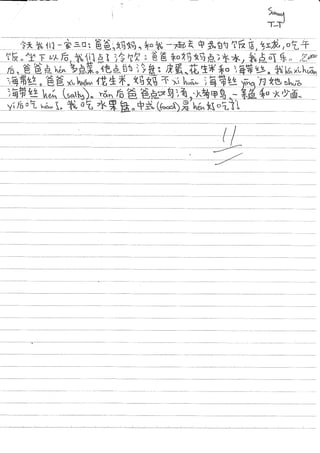 我们一家三口：爸爸，妈妈，和我一起去中式的饭店，红龙，吃午
饭。坐下以后，我们点了冷饮：爸爸和妈妈点冰水，我点可乐。
后，爸爸点hěn多点菜。他点的冷盘：皮蛋，花生米和海带丝。我xǐhuān
海带丝，爸爸xǐhuān花生米，妈妈不xǐhuān海带丝yīng为她shuō
海带丝hěn (salty)。rán后爸爸点，火，鱼和火少面。
了。我吃水果盘。中式(food)是hěn好吃了！
11